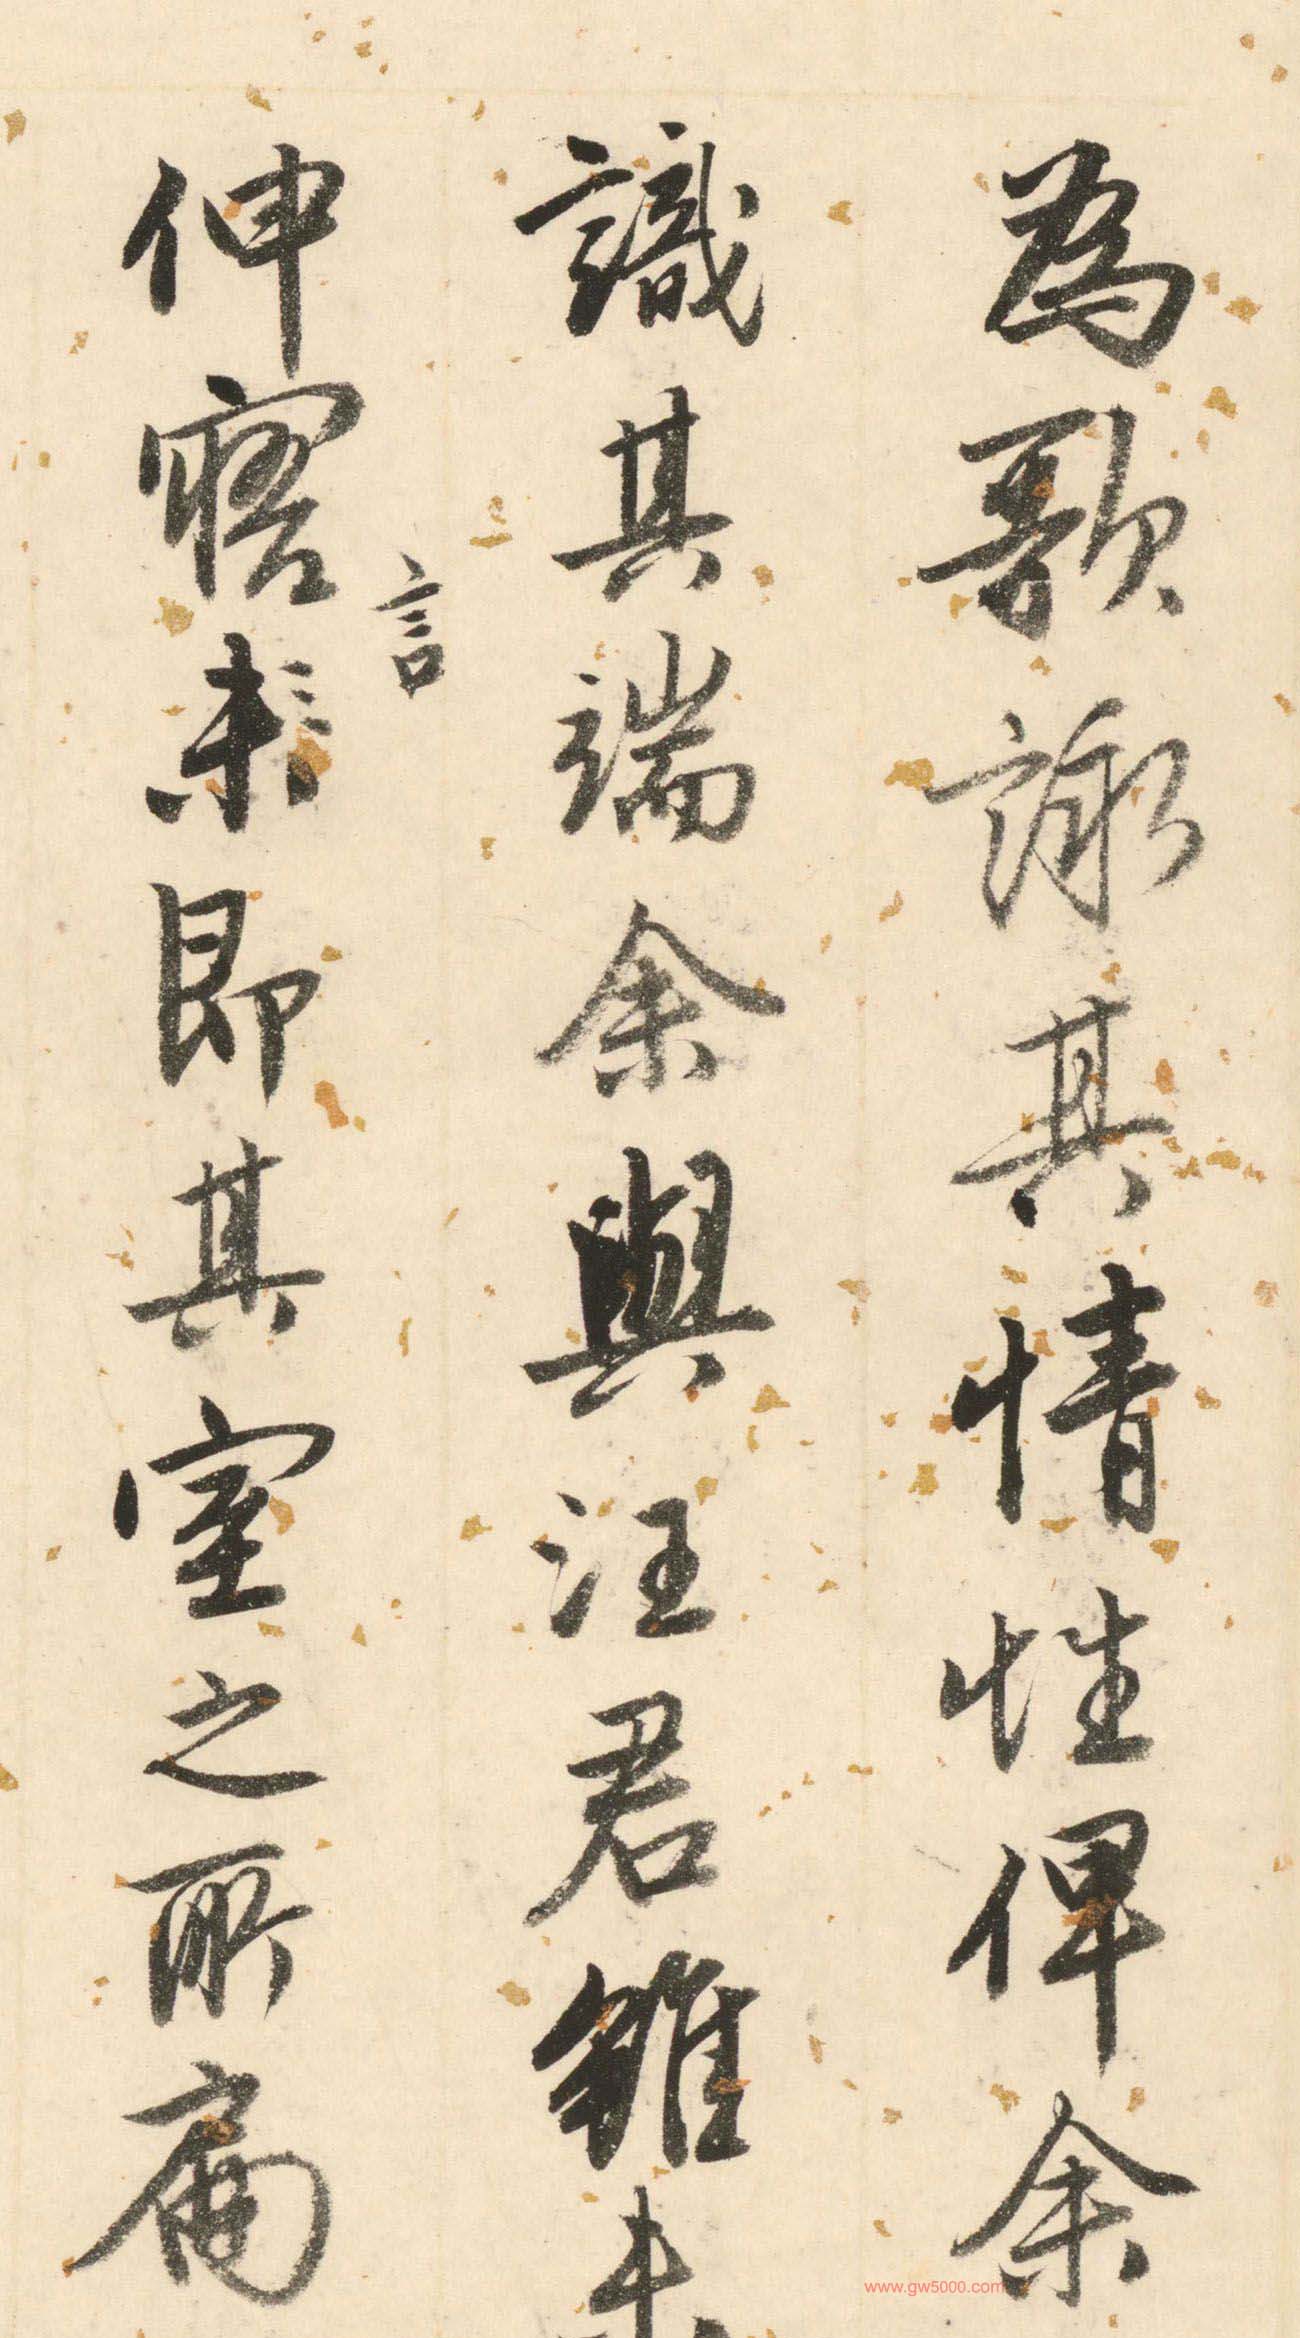 為歌詠其情性俾余
識其端余與汪君雖未
言
伸寤未即其室之所扁
www.gw5000.com